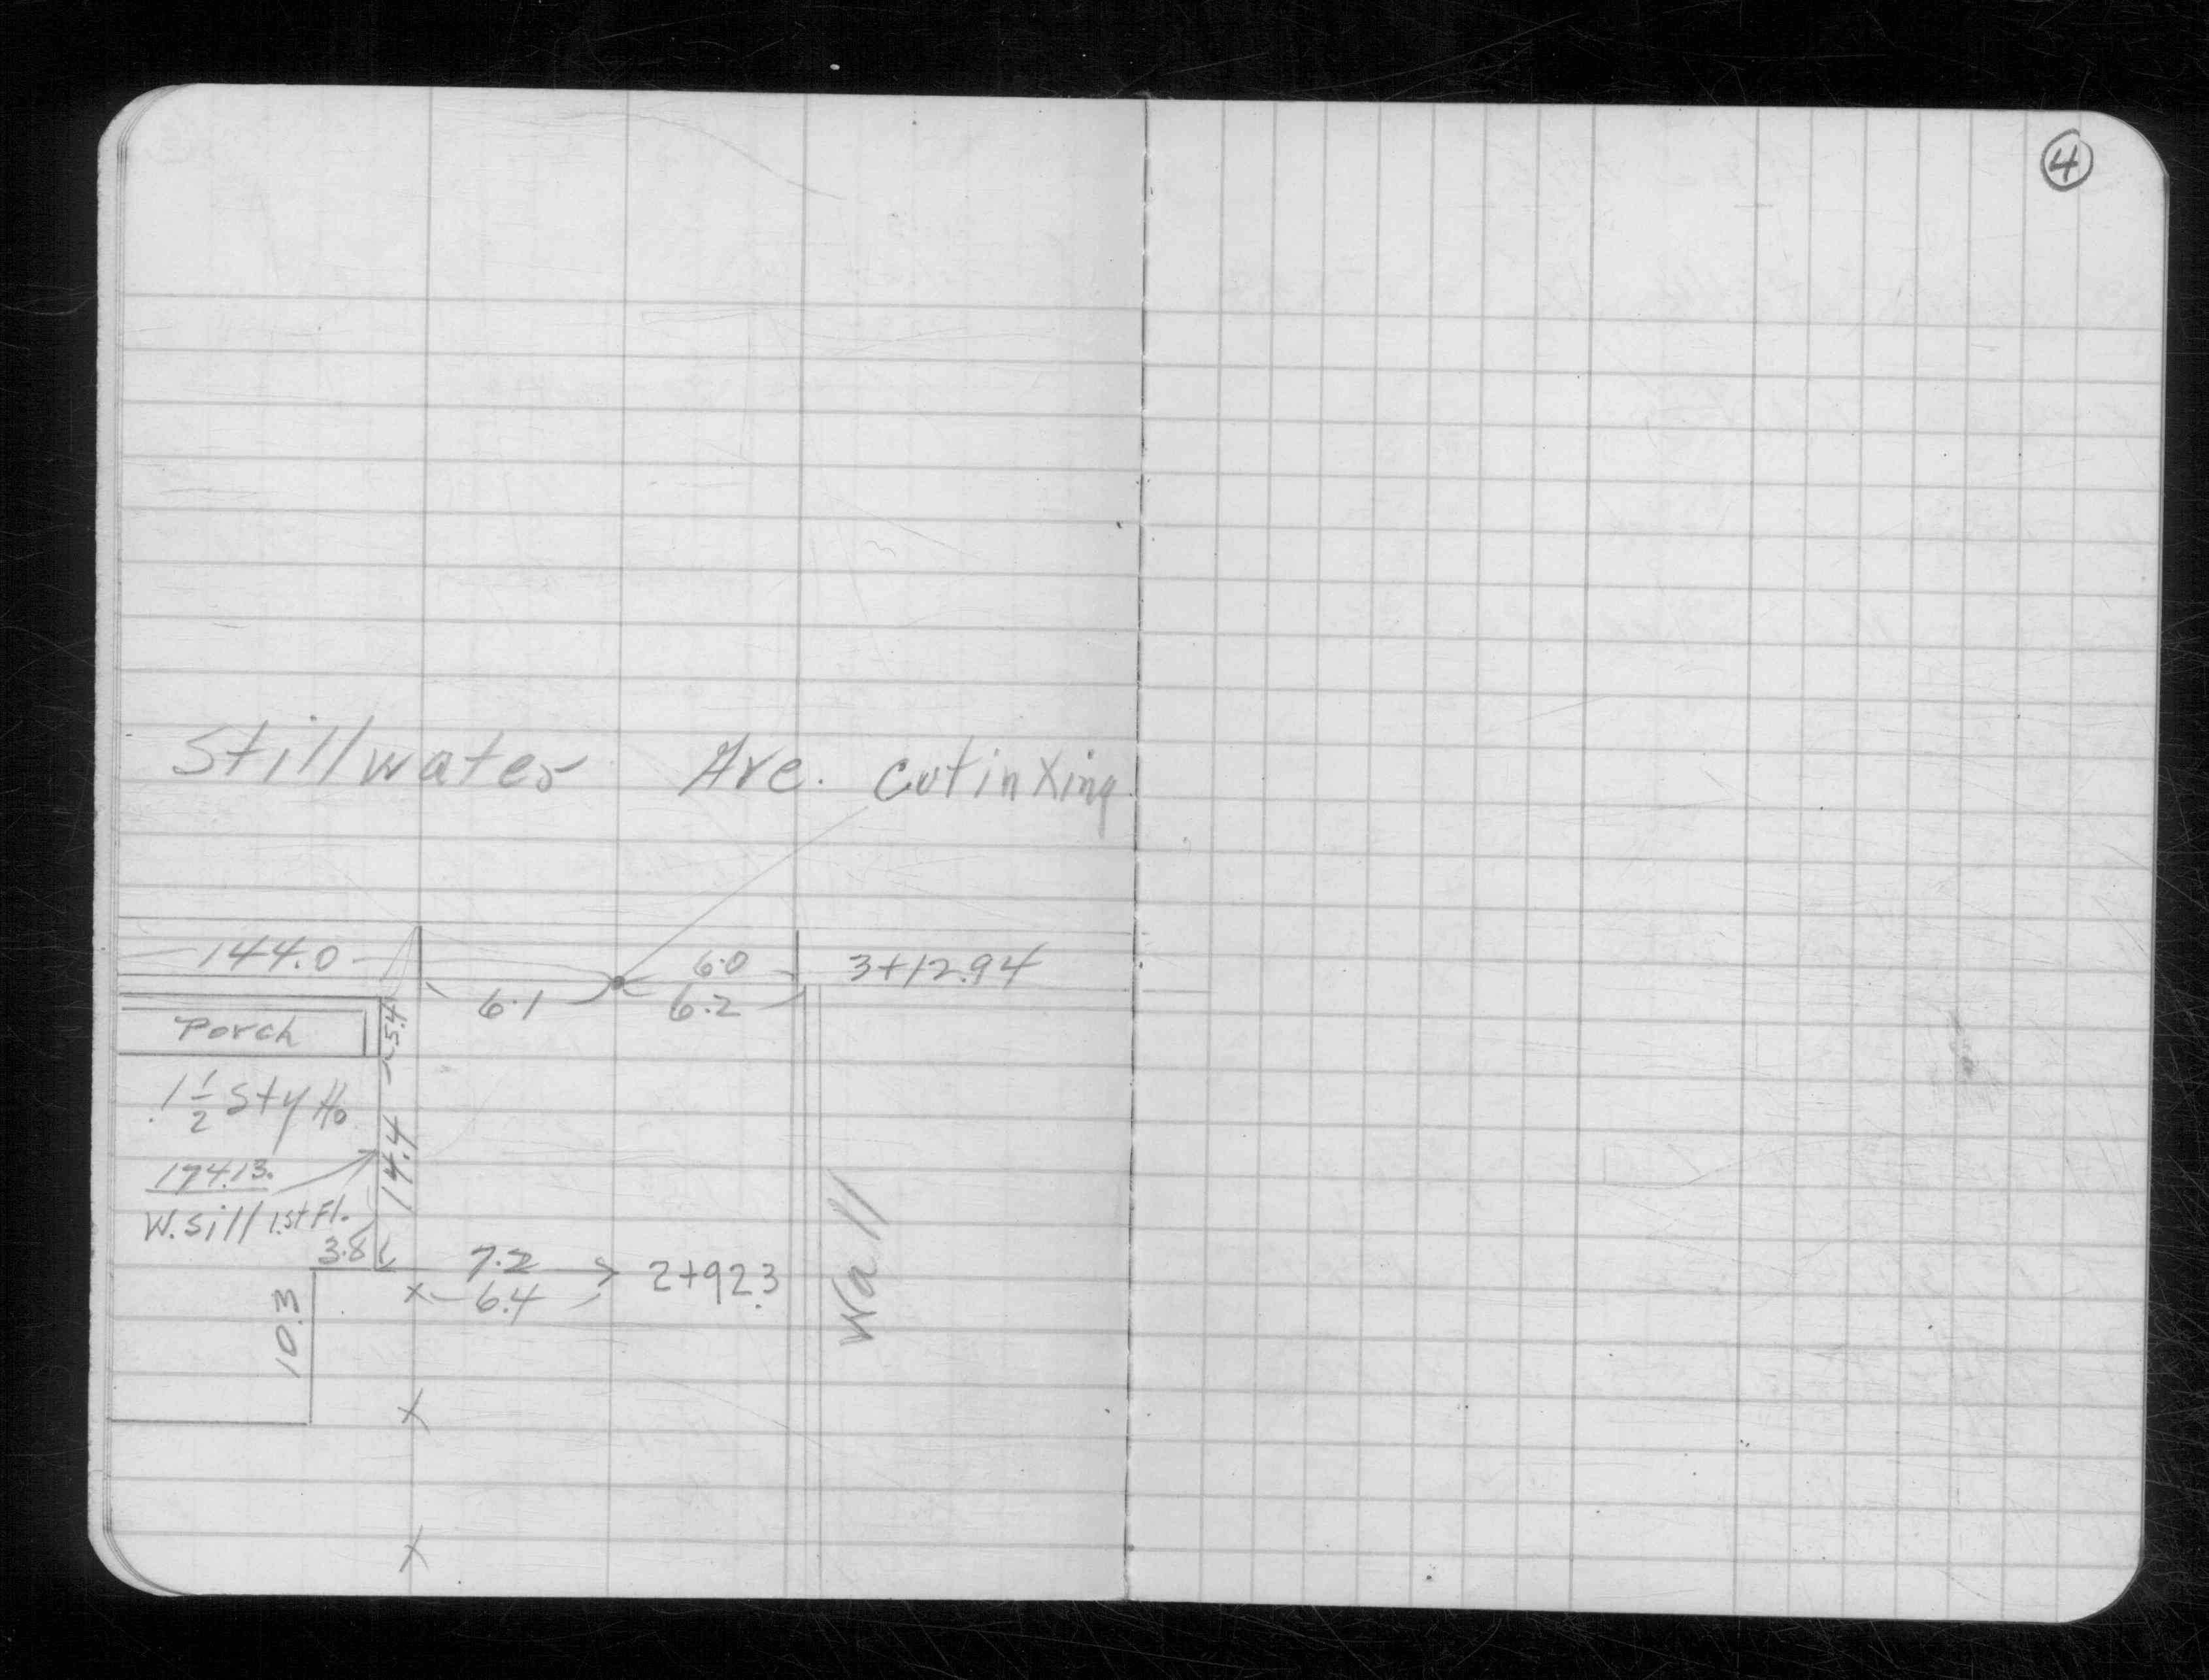 4
Stillwater Ave. cut in Xing
144.0
6.0
3+12.94
6.1
6.2
5.4
Porch
1 1/2 Sty Ho
14.4
174.13
W. Sill 1.st Fl.
3.8
7.2
2+92.3
6.4
10.3
Wall